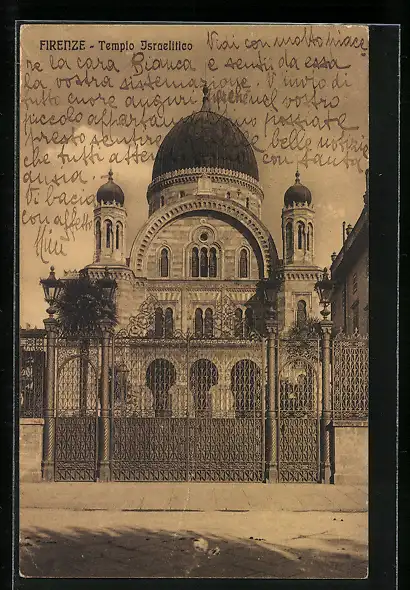 FIRENZE - Tempio Israelitico
Vidi con molto piace
re la cara Bianca e sentii da essa
la vostra sistemazione. V'invio di
tutto cuore auguri che nel vostro
piccolo appartam possiate
presto sentire belle notizie
che tutti atten con tanta
ansia.
Vi bacio
con affetto